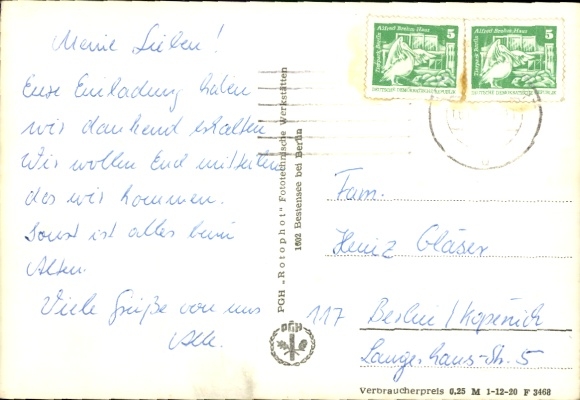 Meine Lieben!
Eure Einladung haben
wir dankend erhalten
Wir wollen Euch mitteilen
das wir kommen.
Sonst ist alles beim
Alten.
Viele Grüße von uns
Alle.
PGH „Rotophot" Fototechnische Werkstätten
1602 Bestensee bei Berlin
PGH
Alfred Brehm Haus 5
Tierpark Berlin
DEUTSCHE DEMOKRATISCHE REPUBLIK
Alfred Brehm Haus 5
Tierpark Berlin
DEUTSCHE DEMOKRATISCHE REPUBLIK
Fam.
Heinz Gläser
117 Berlin/Köpenick
Langerhans-Str. 5
Verbraucherpreis 0,25 M 1-12-20 F 3468